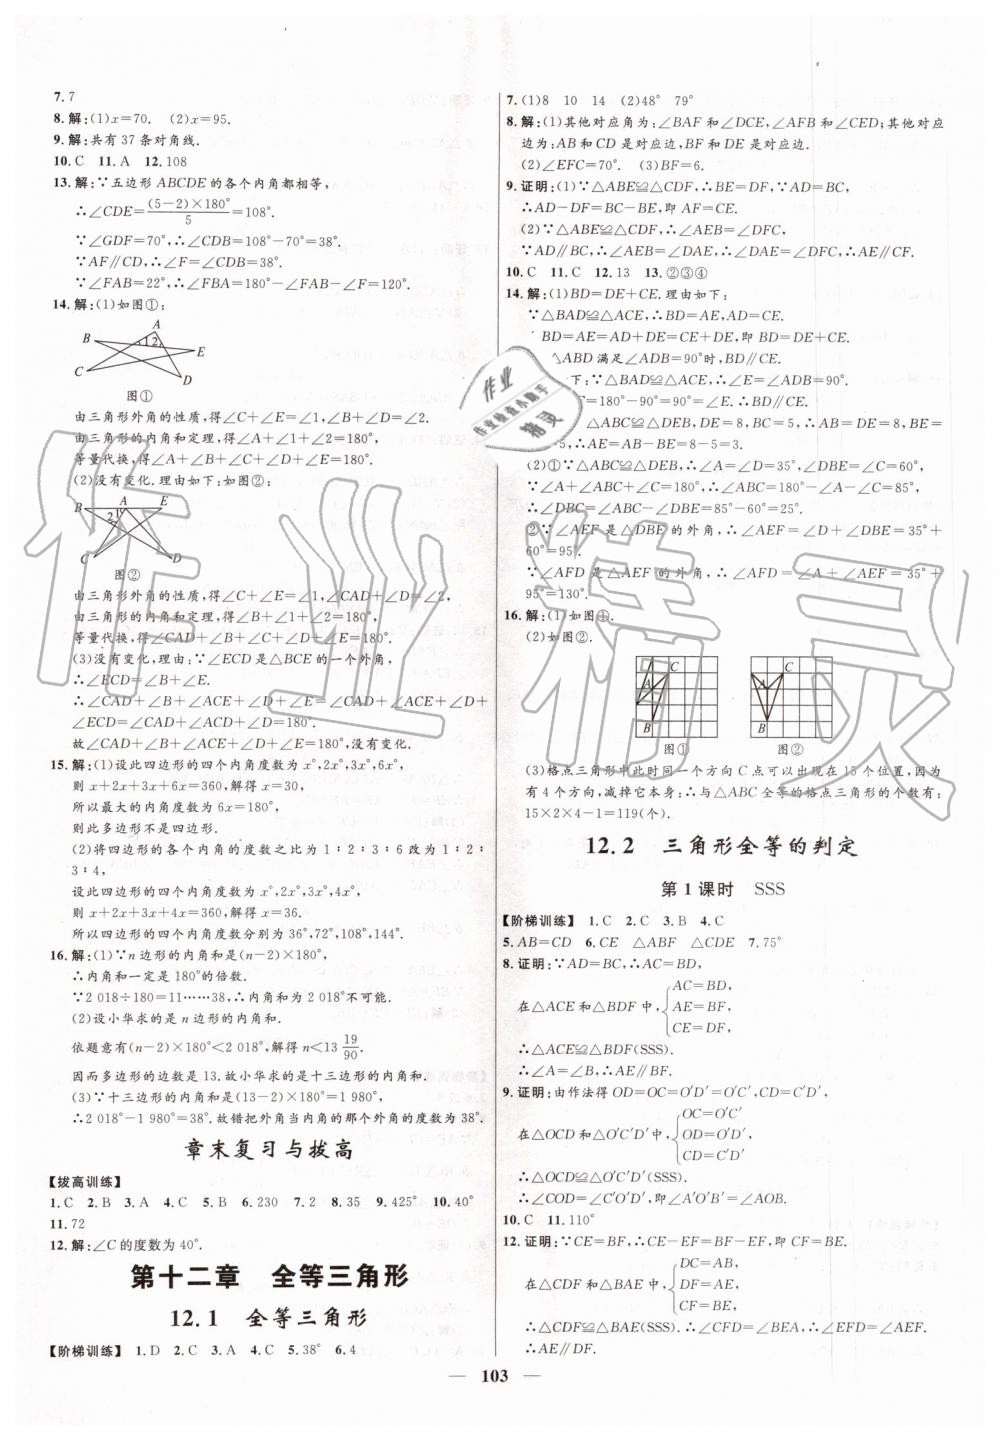 7.7
8.解:(1)x=70.  (2)x=95.
9.解:共有37条对角线.
10.C  11.A  12.108
13.解:∵五边形ABCDE的各个内角都相等,
∴∠CDE=(5-2)×180°/5=108°.
∵∠GDF=70°,∴∠CDF=108°-70°=38°.
∵AF∥CD,∴∠F=∠CDF=38°.
∵∠FAB=22°,∴∠FBA=180°-∠FAB-∠F=120°.
14.解:(1)如图①:
A
B
1 2
E
C
D
图①
由三角形外角的性质,得∠C+∠E=∠1,∠B+∠D=∠2.
由三角形的内角和定理,得∠A+∠1+∠2=180°.
等量代换,得∠A+∠B+∠C+∠D+∠E=180°.
(2)没有变化.理由如下:如图②:
B A E
2 1
C D
图②
由三角形外角的性质,得∠C+∠E=∠1,∠CAD+∠D=∠2.
由三角形的内角和定理,得∠B+∠1+∠2=180°.
等量代换,得∠CAD+∠B+∠C+∠D+∠E=180°.
(3)没有变化,理由:∵∠ECD是△BCE的一个外角,
∴∠ECD=∠B+∠E.
∴∠CAD+∠B+∠ACE+∠D+∠E=∠CAD+∠ACE+∠D+
∠ECD=∠CAD+∠ACD+∠D=180°.
故∠CAD+∠B+∠ACE+∠D+∠E=180°,没有变化.
15.解:(1)设此四边形的四个内角度数为x°,2x°,3x°,6x°.
则x+2x+3x+6x=360,解得x=30,
所以最大的内角度数6x=180°,
则此多边形不是四边形.
(2)将四边形的各个内角的度数之比为1∶2∶3∶6改为1∶2∶
3∶4,
设此四边形的四个内角度数为x°,2x°,3x°,4x°,
则x+2x+3x+4x=360,解得x=36.
所以四边形的四个内角度数分别为36°,72°,108°,144°.
16.解:(1)∵n边形的内角和是(n-2)×180°,
∴内角和一定是180°的倍数.
∵2 018÷180=11……38,∴内角和为2 018°不可能.
(2)设小华求的是n边形的内角和.
依题意有(n-2)×180°<2 018°,解得n<13 19/90.
因而多边形的边数是13.故小华求的是十三边形的内角和.
(3)∵十三边形的内角和是(13-2)×180°=1 980°,
∴2 018°-1 980°=38°.故错把外角当内角的那个外角的度数为38°.
章末复习与拔高
【拔高训练】
1.C  2.B  3.A  4.C  5.B  6.230  7.2  8.35  9.425°  10.40°
11.72
12.解:∠C的度数为40°.
第十二章  全等三角形
12.1  全等三角形
【阶梯训练】  1.D  2.C  3.A  4.C  5.38°  6.4
7.(1)8  10  14  (2)48°  79°
8.解:(1)其他对应角为:∠BAF和∠DCE,∠AFB和∠CED;其他对应
边为:AB和CD是对应边,BF和DE是对应边.
(2)∠EFC=70°.  (3)BF=6.
9.证明:(1)∵△ABE≌△CDF,∴BE=DF,∵AD=BC,
∴AD-DF=BC-BE,即AF=CE.
(2)∵△ABE≌△CDF,∴∠AEB=∠DFC,
∵AD∥BC,∴∠AEB=∠DAE,∴∠DAE=∠DFC,∴AE∥CF.
10.C  11.C  12.13  13.②③④
14.解:(1)BD=DE+CE.理由如下:
∵△BAD≌△ACE,∴BD=AE,AD=CE.
BD=AE=AD+DE=CE+DE,即BD=DE+CE.
ABD满足∠ADB=90°时,BD∥CE.
下:∵△BAD≌△ACE,∴∠E=∠ADB=90°,
°-90°=90°=∠E,∴BD∥CE.
△ABC≌△DEB,DE=8,BC=5,∴AB=DE=8,BE=
=5,∴AE=AB-BE=8-5=3.
(2)①∵△ABC≌△DEB,∴∠A=∠D=35°,∠DBE=∠C=60°,
∵∠A+∠ABC+∠C=180°,∴∠ABC=180°-∠A-∠C=85°,
∴∠DBC=∠ABC-∠DBE=85°-60°=25°.
②∵∠AEF是△DBE的外角,∴∠AEF=∠D+∠DBE=35°+
60°=95°.
∵∠AFD是△AEF的外角,∴∠AFD=∠A+∠AEF=35°+
95°=130°.
16.解:(1)如图①.
(2)如图②.
C
A
B
图①
C
A
B
图②
(3)格点三角形中此时同一个方向C点可以出现在15个位置,因为
有4个方向,减掉它本身;∴与△ABC全等的格点三角形的个数有:
15×2×4-1=119(个).
12.2  三角形全等的判定
第1课时  SSS
【阶梯训练】  1.C  2.C  3.B  4.C
5.AB=CD  6.CE  △ABF  △CDE  7.75°
8.证明:∵AD=BC,∴AC=BD,
在△ACE和△BDF中,
AC=BD,
AE=BF,
CE=DF,
∴△ACE≌△BDF(SSS).
∴∠A=∠B,∴AE∥BF.
9.证明:由作法得OD=OC=O′D′=O′C′,CD=C′D′,
在△OCD和△O′C′D′中,
OC=O′C′
OD=O′D′,
CD=C′D′
∴△OCD≌△O′C′D′(SSS).
∴∠COD=∠C′O′D′,即∠A′O′B′=∠AOB.
10.C  11.110°
12.证明:∵CE=BF,∴CE-EF=BF-EF,即CF=BE.
在△CDF和△BAE中,
DC=AB,
DF=AE,
CF=BE,
∴△CDF≌△BAE(SSS).∴∠CFD=∠BEA,∴∠EFD=∠AEF.
∴AE∥DF.
— 103 —
作业
作业检查小助手
精灵
作业精灵